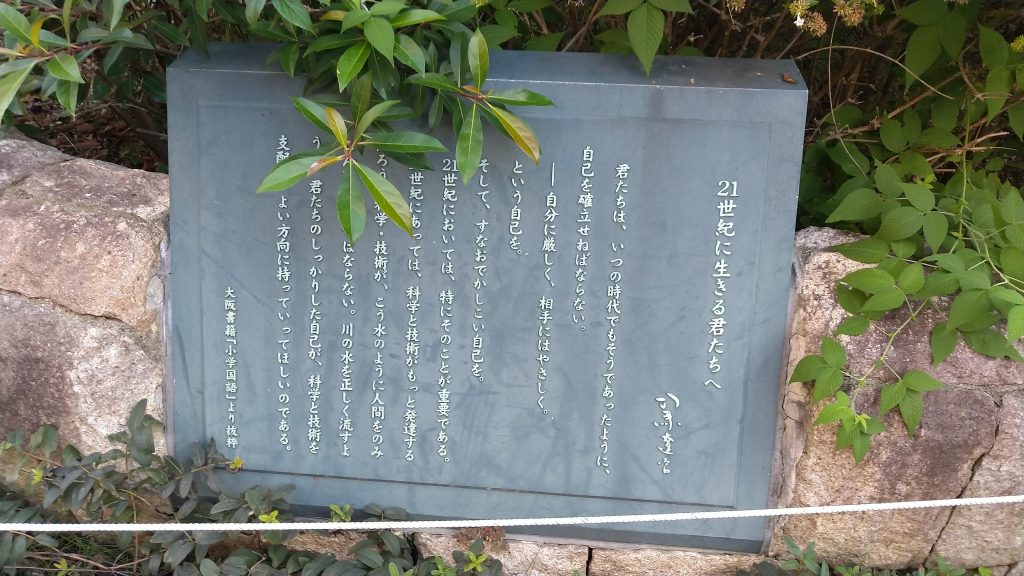 21世紀に生きる君たちへ
司馬遼太郎
君たちは、いつの時代でもそうであったように、
自己を確立せねばならない。
―自分に厳しく、相手にはやさしく。
という自己を。
そして、すなおでかしこい自己を。
21世紀においては、特にそのことが重要である。
世紀にあっては、科学と技術がもっと発達する
ろ学・技術が、こう水のように人間をのみ
はならない。川の水を正しく流すよ
う君たちのしっかりした自己が、科学と技術を
支配よい方向に持っていってほしいのである。
大阪書籍「小学国語」より抜粋